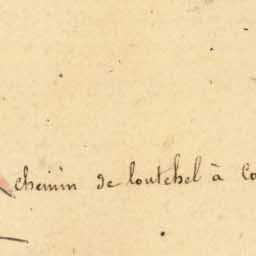 chemin de loutehel à